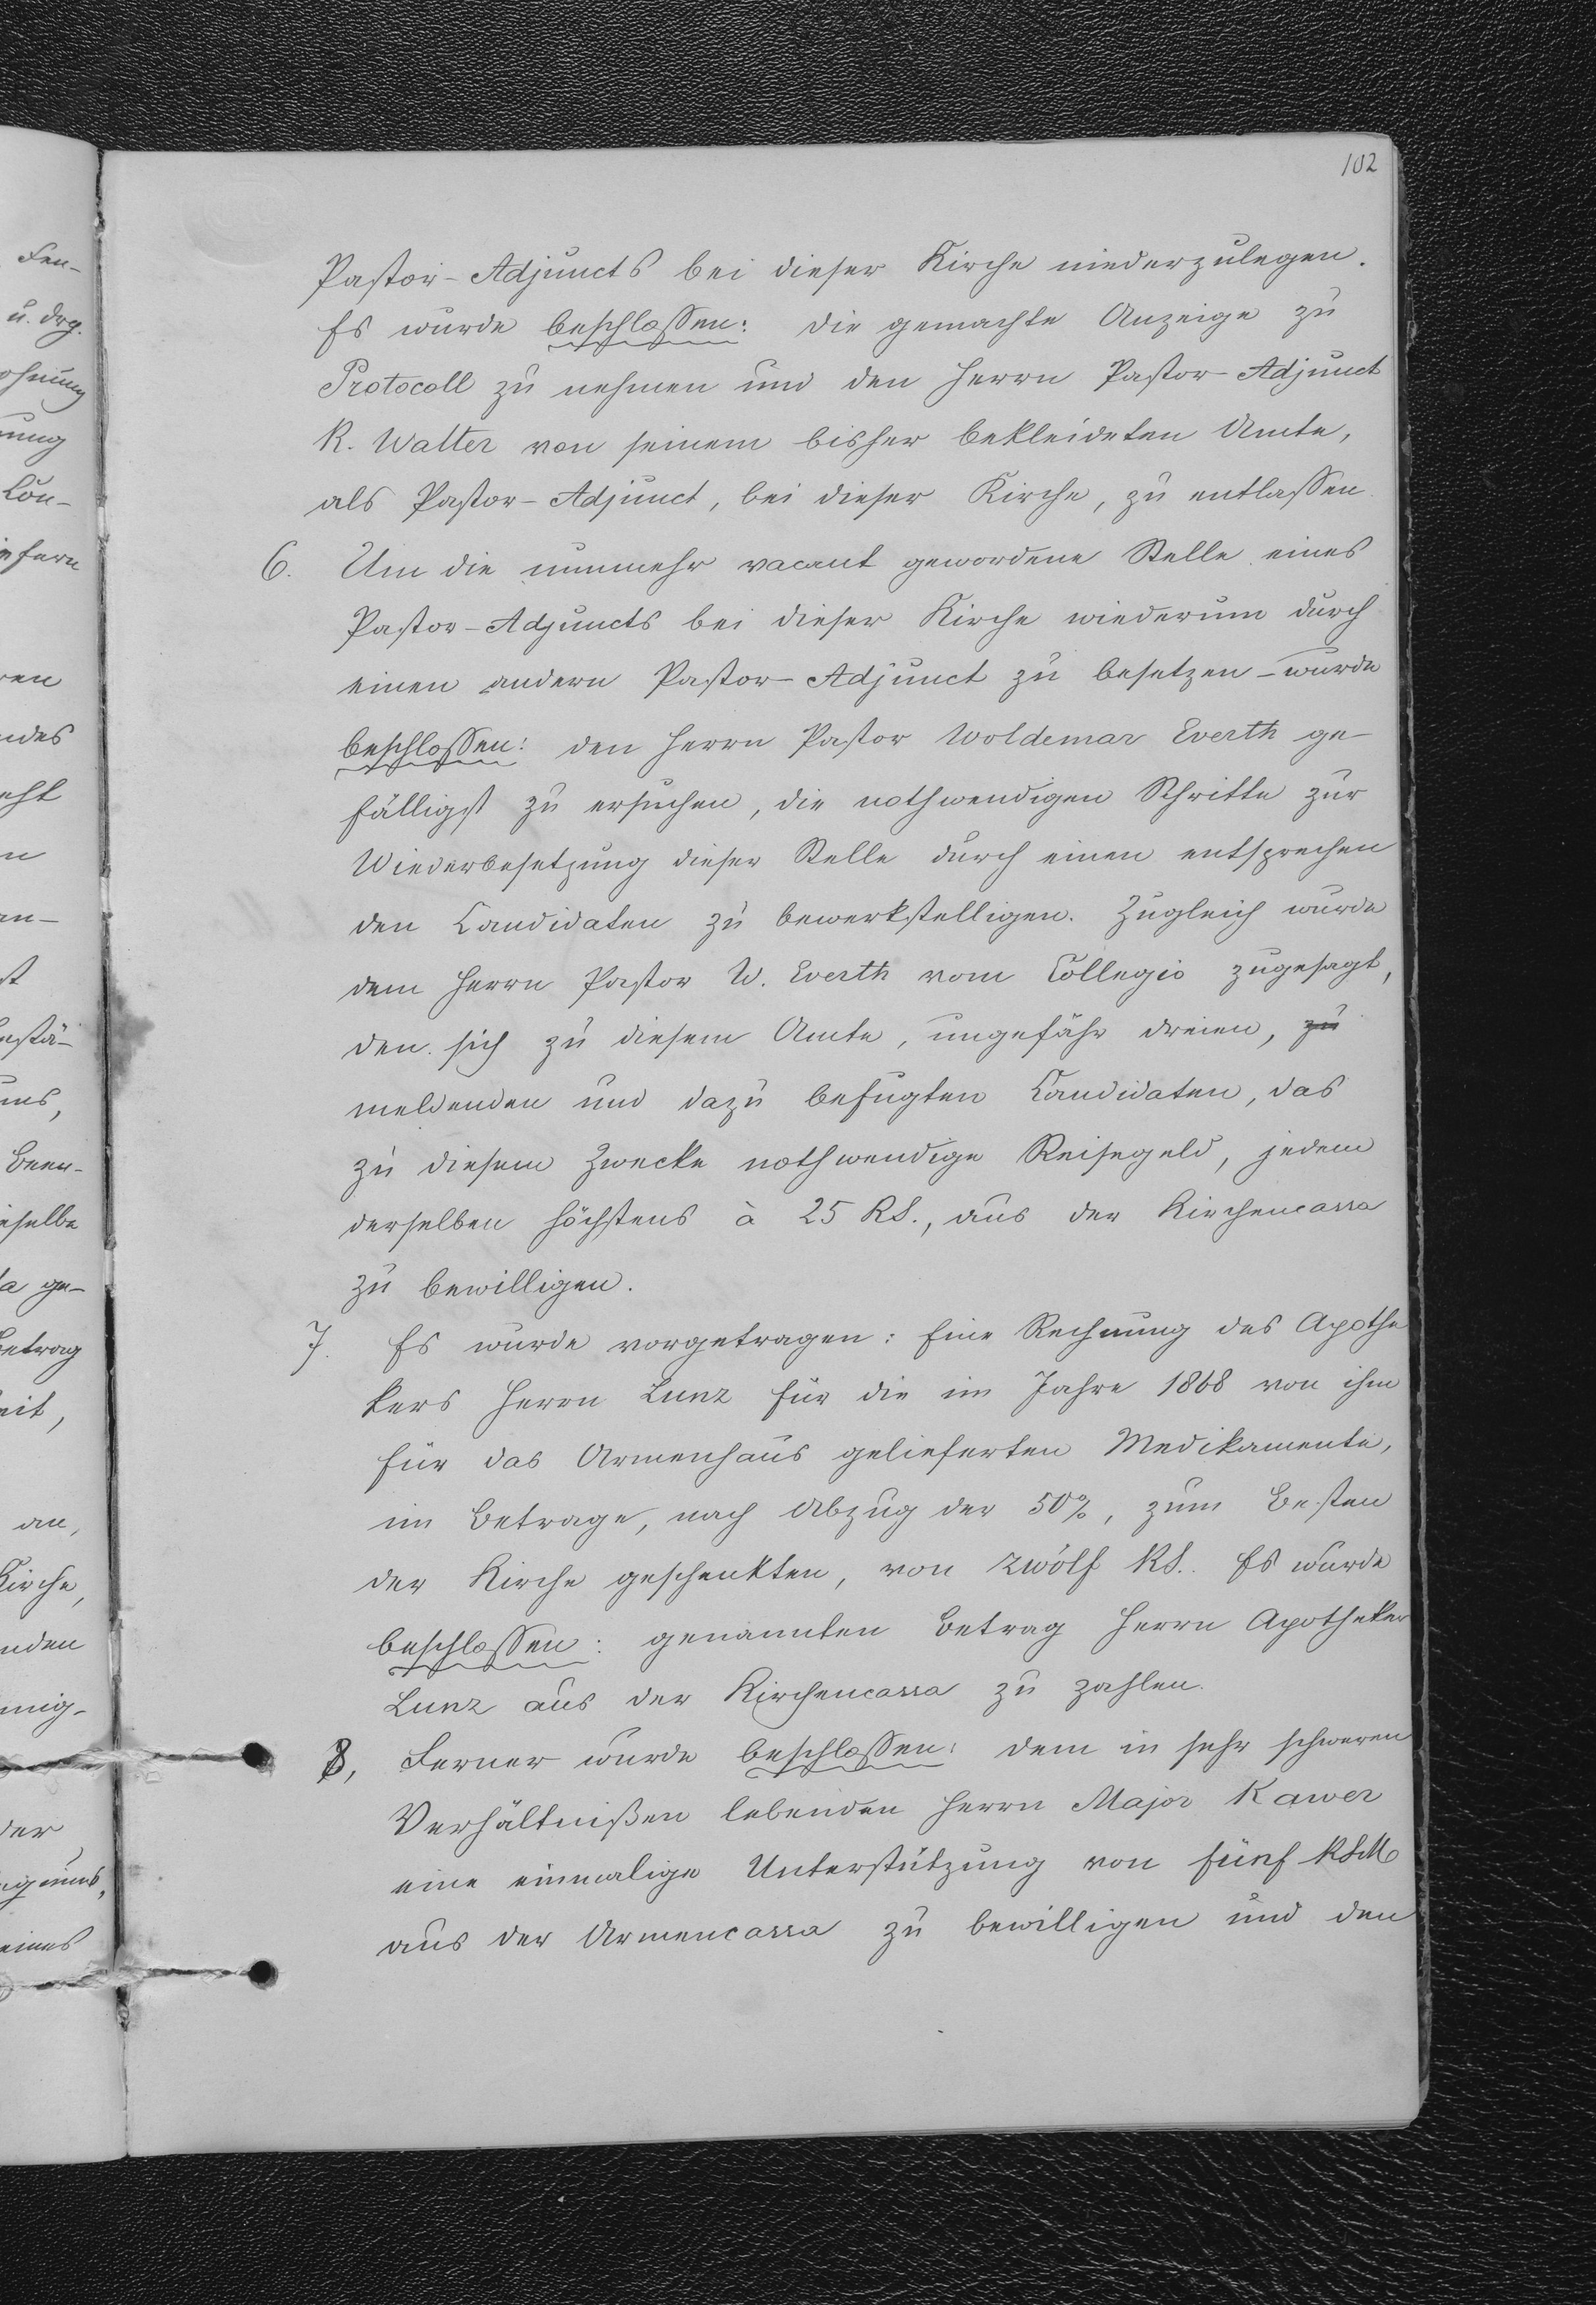 102
Pastor-Adjuncts bei dieser Kirche niederzulegen.
Es wurde beschlossen: die gemachte Anzeige zu
Protocoll zu nehmen und den Herrn Pastor-Adjunct
R. Walter von seinem bisher bekleideten Amte,
als Pastor-Adjunct, bei dieser Kirche, zu entlassen.
6. Um die nunmehr vacant gewordene Stelle eines
Pastor-Adjuncts bei dieser Kirche wiederum durch
einen andern Pastor-Adjunct zu besetzen – wurde
beschlossen: den Herrn Pastor Woldemar Everth ge-
fälligst zu ersuchen, die nothwendigen Schritte zur
Wiederbesetzung dieser Stelle durch einen entsprechen
den Candidaten zu bewerkstelligen. Zugleich wurde
dem Herrn Pastor W. Everth vom Collegio zugesagt,
den sich zu diesem Amte, ungefähr dreien, zu
meldenden und dazu befugten Candidaten, das
zu diesem Zwecke nothwendige Reisegeld, jedem
derselben höchstens à 25 RS., aus der Kirchencassa
zu bewilligen.
7. Es wurde vorgetragen: Eine Rechnung des Apothe
kers Herrn Lunz für die im Jahre 1868 von ihm
für das Armenhaus gelieferten Medikamente,
im Betrage, nach Abzug der 50%, zum Besten
der Kirche geschenkten, von zwölf RS.. Es wurde
beschlossen: genannten Betrag Herrn Apotheker
Lunz aus der Kirchencassa zu zahlen.
8, Ferner wurde beschlossen: dem in sehr schweren
Verhältnißen lebenden Herrn Major Kawer
eine einmalige Unterstützung von fünf RSM
aus der Armencassa zu bewilligen und den